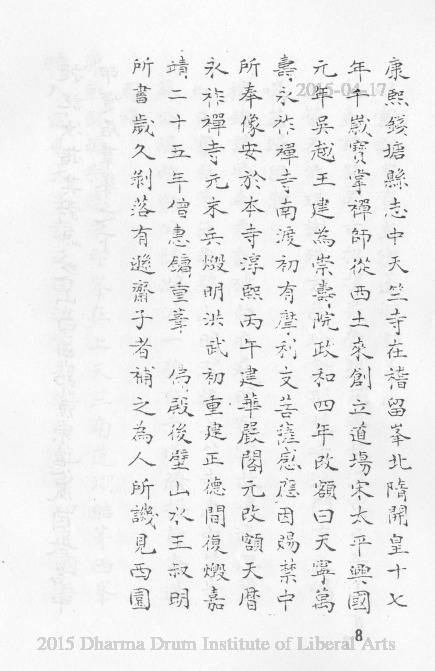 康熙錢塘縣志中天竺寺在稽留峯北隋開皇十七
年千歲寶掌禪師從西土來創立道場宋太平興國
元年吳越王建為崇壽院政和四年改額曰天寧萬
壽永祚禪寺南渡初有摩利支菩薩感應因賜禁中
所奉像安於本寺淳熙丙午建華嚴閣元改額天曆
永祚禪寺元末兵燬明洪武初重建正德間復燬嘉
靖二十五年僧惠鏞重葺 佛殿後壁山水王叔明
所書歲久剝落有遯齋子者補之為人所譏見西園
2015-04-17
8
2015 Dharma Drum Institute of Liberal Arts